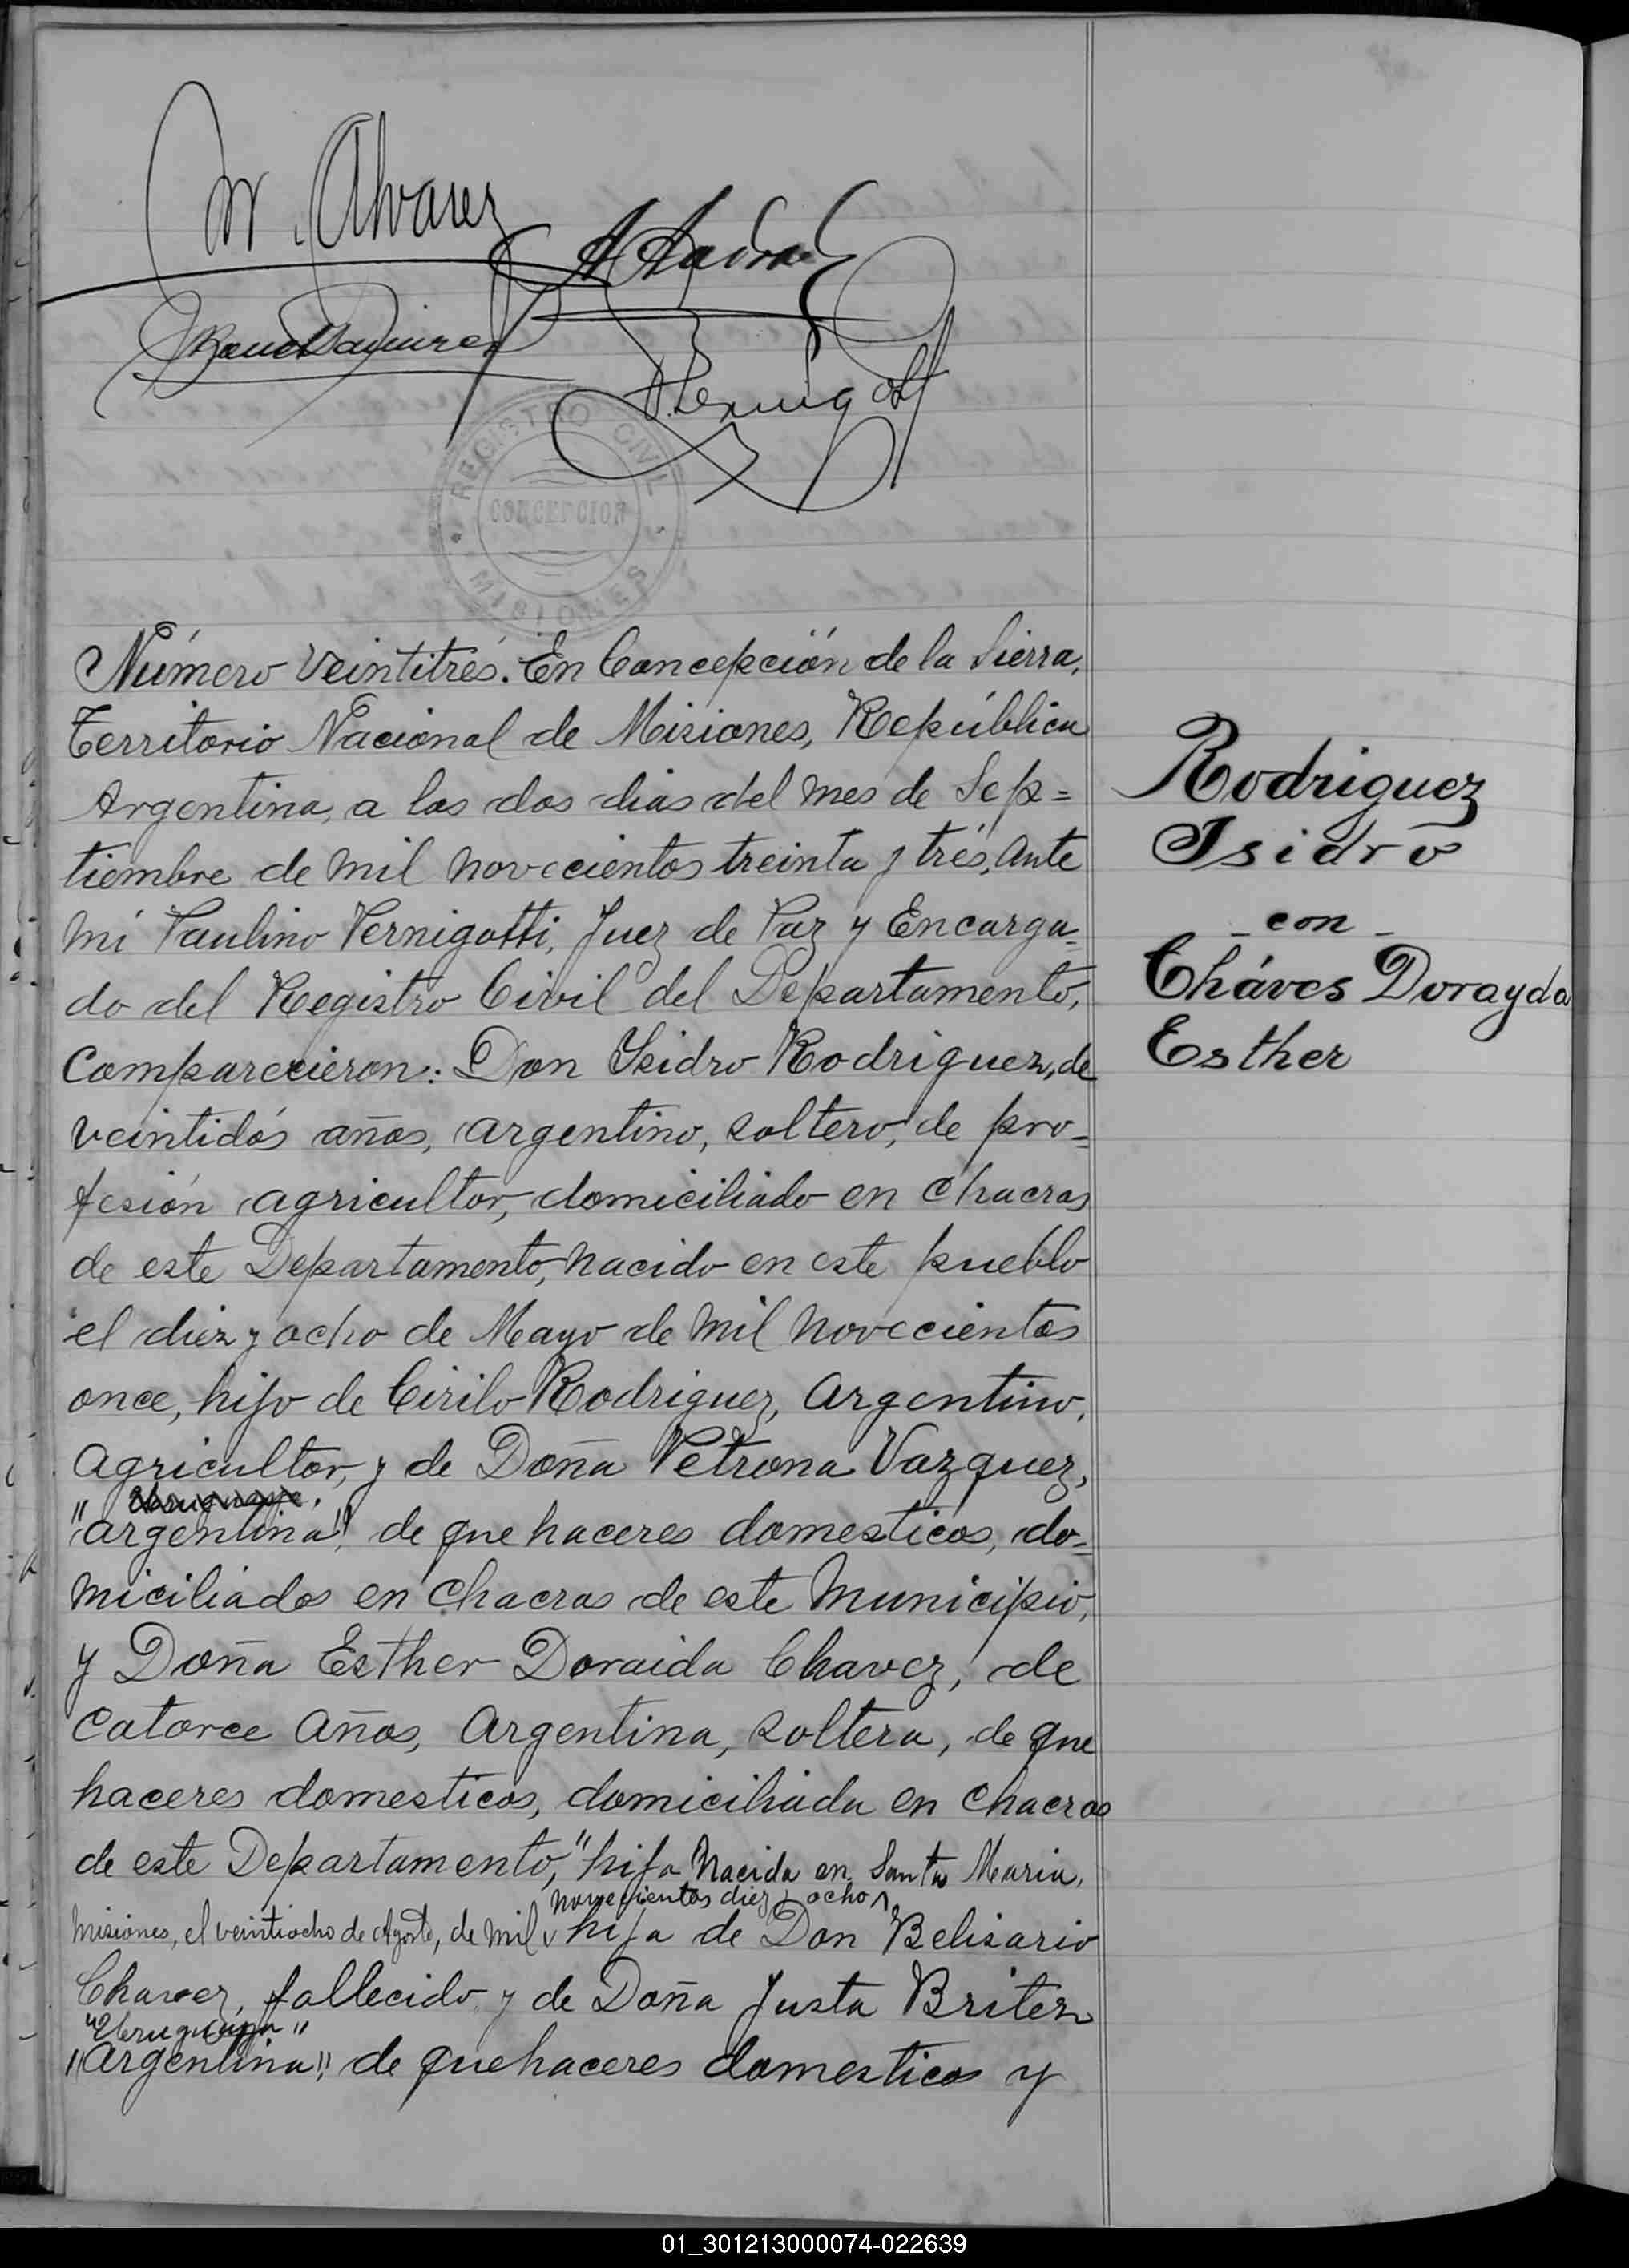 M. Alvarez
REGISTRO CIVIL
CONCEPCION
MISIONES
Número veintitrés. En Concepción de la Sierra,
Territorio Nacional de Misiones, República
Argentina, a los dos dias del mes de Sep=
tiembre de mil novecientos treinta y trés, ante
mí Paulino Vernigotti, Juez de Paz y Encarga=
do del Registro Civil del Departamento,
Comparecieron: Don Isidro Rodriguez, de
veintidós años, argentino, soltero, de pro=
fesión agricultor, domiciliado en chacras
de este Departamento, nacido en este pueblo
el diez y ocho de Mayo de mil novecientos
once, hijo de Cirilo Rodriguez, Argentino,
Agricultor, y de Doña Petrona Vazquez,
"argentina", de que haceres domesticos, do=
miciliados en chacras de este Municipio,
y Doña Esther Doraida Chavez, de
catorce años, Argentina, soltera, de que
haceres domesticos, domiciliada en chacras
de este Departamento, "hija nacida en Santa Maria,
novecientos diez y ocho
Misiones, el veintiocho de Agosto, de mil hija de Don Belisario
Chavez, fallecido y de Doña Justa Britez
"Uruguaya"
"Argentina", de quehaceres domesticos y
Rodriguez
Isidro
- con -
Cháves Dorayda
Esther
01_301213000074-022639